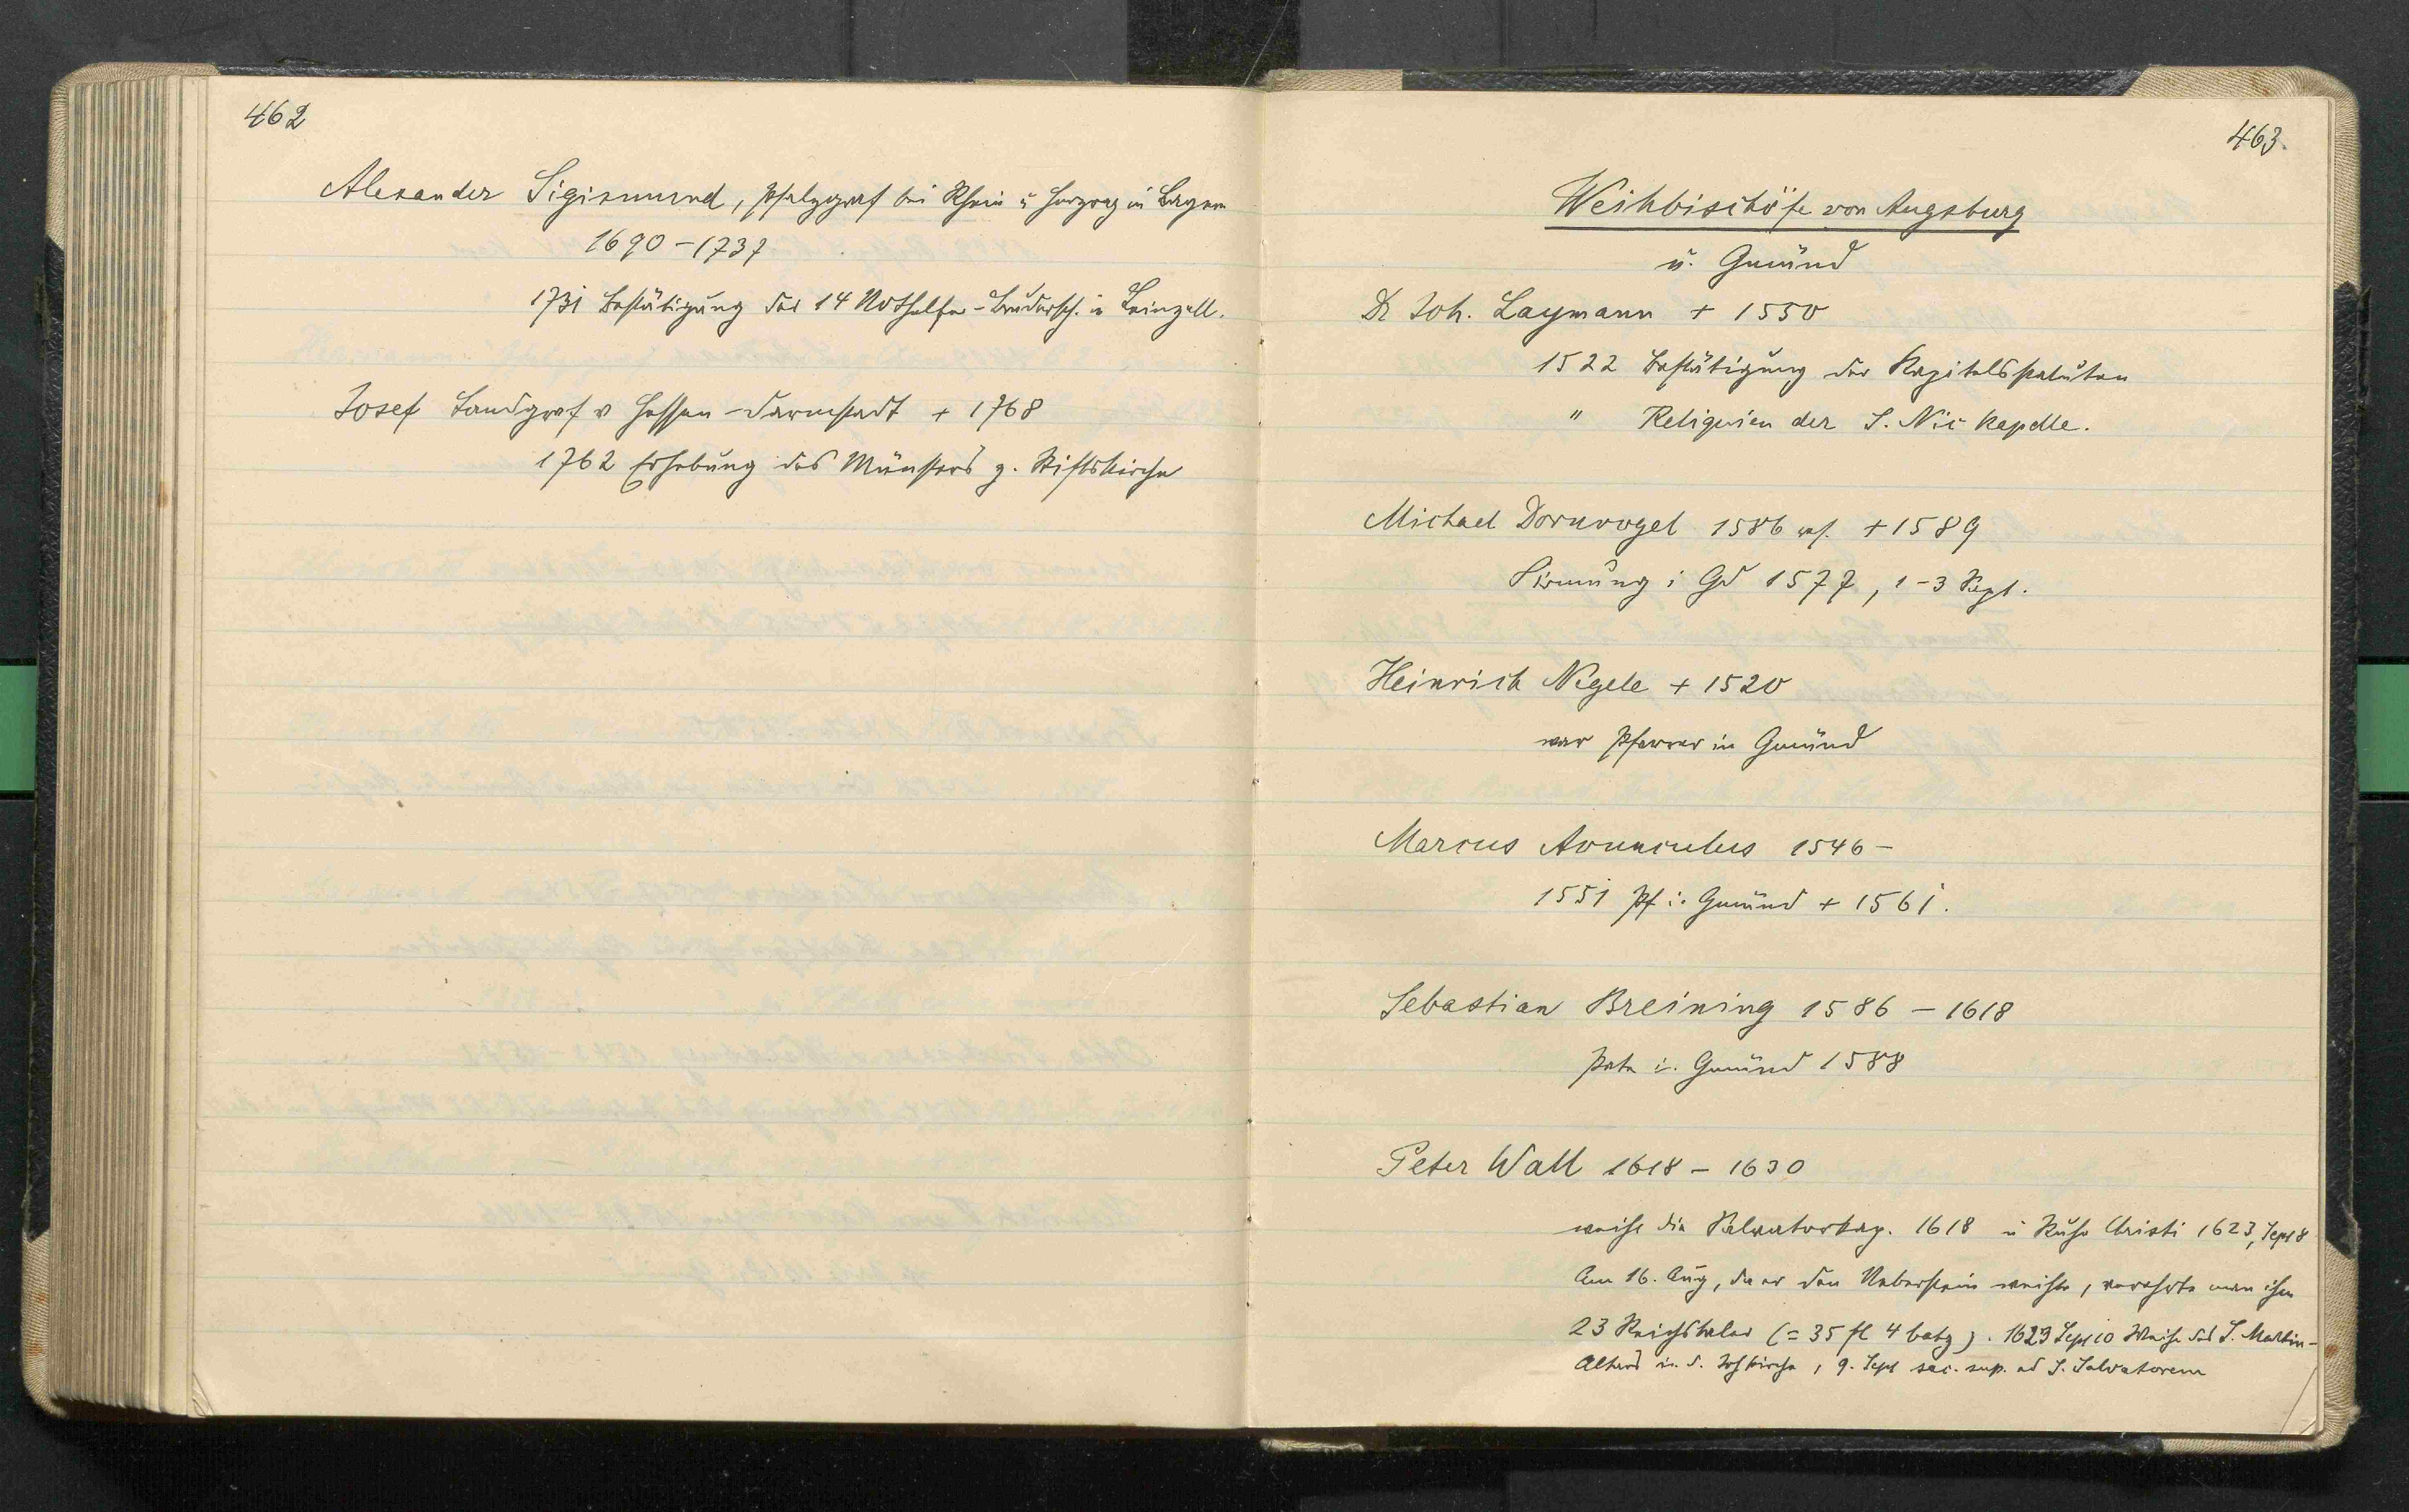 462
Alexander Sigismund, Pfalzgraf bei Rhein u Herzog in Bayern
1690-1737
1731 Bestätigung der 14 Nothelfer-Brudersch. in Leinzell.
Josef Landgraf v Hessen-Darmstadt + 1768
1762 Erhebung des Münsters z. Stiftskirche
463.
Weihbischöfe von Augsburg
u. Gmünd
Dr Joh. Laymann + 1550
1522 Bestätigung der Kapitelsstatuten
" Reliquien der S. Nic kapelle.
Michael Dornvogel 1586 res. +1589
Firmung i Gd 1577, 1-3 Sept.
Heinrich Negele + 1520
war Pfarrer in Gmünd
Marcus Avunculus 1546-
1551 Pf i. Gmünd + 1561.
Sebastian Breining 1586 - 1618
i. Gmünd 1588
Peter Wall 1618 - 1630
weiht die Salvatorkap. 1618 u Ruhe Christi 1623, Sept 8
Am 16. Aug, da er den Ueberstein weihte, verehrte man ihm
23 Reichstaler (= 35 fl 4 batz). 1623 Sept 10 Weihe des S. Martin-
Altars in d. Johkirche, 9. Sept sac. sup. ad S. Salvatorem